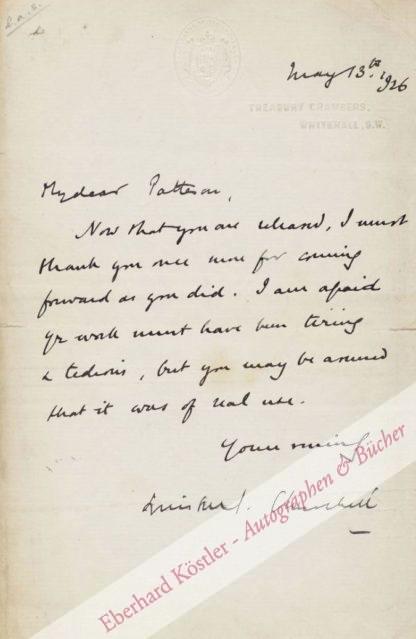 L.a.s.
May 13th. 1926
TREASURY CHAMBERS,
WHITEHALL, S.W.
My dear Patteson,
Now that you are released, I must
thank you once more for coming
forward as you did. I am afraid
yr work must have been tiring
& tedious, but you may be assured
that it was of real use.
Yours sincerely
Winston S. Churchill
Eberhard Köstler - Autographen & Bücher